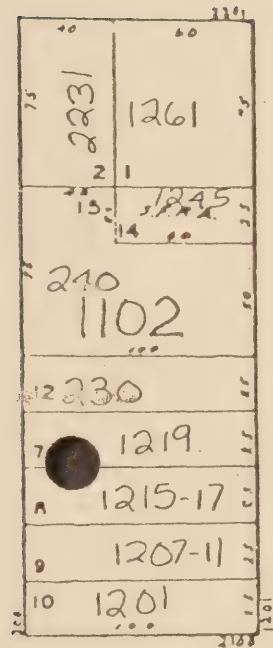 2201
40 60
75 2231 1261
2 1
13 1245 25
14
75 240 50
1102
100
12 230 25
7 1219 25
8 1215-17 25
9 1207-11 25
10 1201 25
100 1201
2188